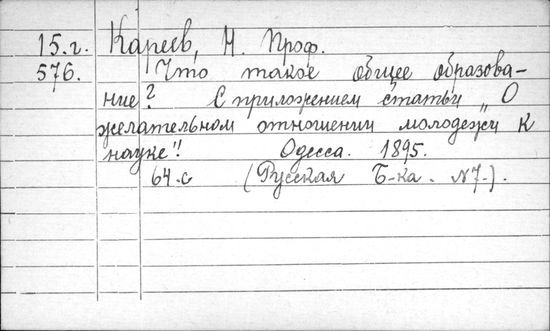 15.г. Кареев, Н. Проф.
576. Что такое общее образова-
ние? С приложением статьи „О
желательном отношении молодежи к
науке"! Одесса. 1895.
64.с (Русская Б-ка. №7.).